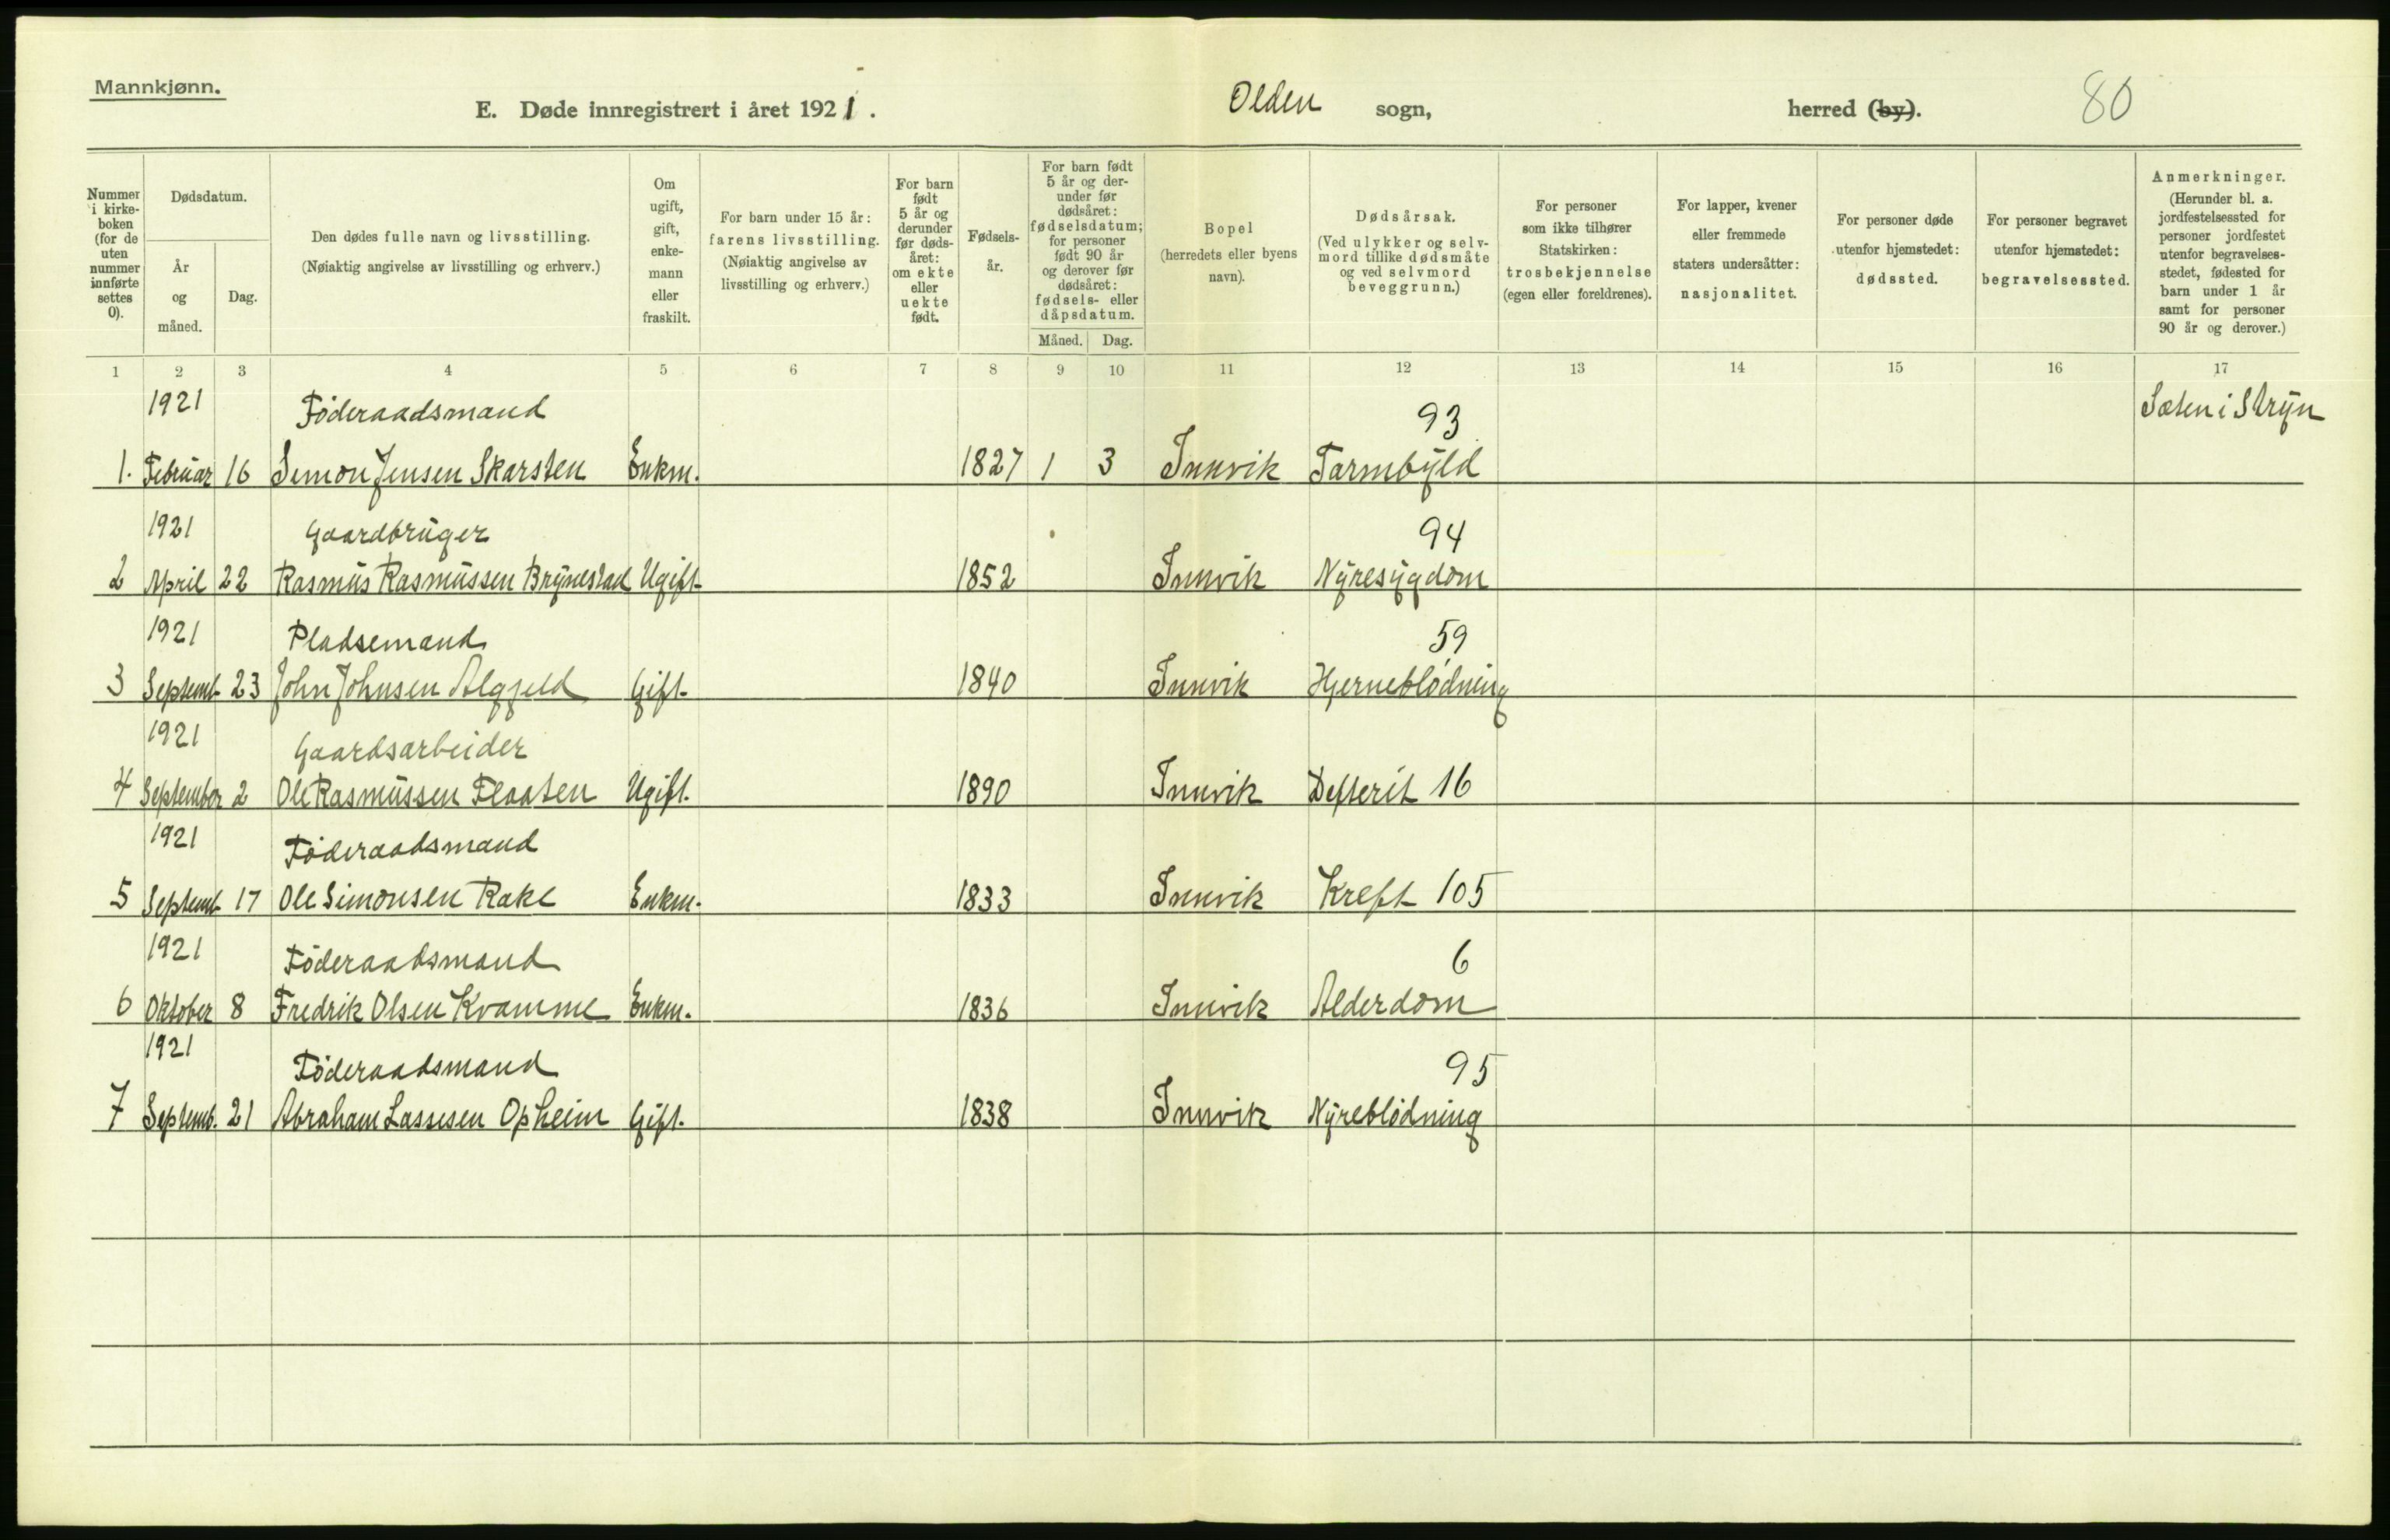 Mannkjønn.
E. Døde innregistrert i året 1921. Olden sogn, herred (by). 80
Nummer i kirke- boken (for de uten nummer innførte settes 0).
Dødsdatum.
År og måned.
Dag.
Den dødes fulle navn og livsstilling.
(Nøiaktig angivelse av livsstilling og erhverv.)
Om ugift, gift, enke- mann eller fraskilt.
For barn under 15 år:
farens livsstilling.
(Nøiaktig angivelse av livsstilling og erhverv.)
For barn født 5 år og derunder før døds- året: om ekte eller uekte født.
Fødsels- år.
For barn født 5 år og der- under før dødsåret: fødselsdatum; for personer født 90 år og derover før dødsåret: fødsels- eller dåpsdatum.
Måned. Dag.
Bopel
(herredets eller byens navn).
Dødsårsak.
(Ved ulykker og selv- mord tillike dødsmåte og ved selvmord beveggrunn.)
For personer som ikke tilhører Statskirken: trosbekjennelse (egen eller foreldrenes).
For lapper, kvener eller fremmede staters undersåtter: nasjonalitet.
For personer døde utenfor hjemstedet: dødssted.
For personer begravet utenfor hjemstedet: begravelsessted.
Anmerkninger.
(Herunder bl. a. jordfestelsessted for personer jordfestet utenfor begravelses- stedet, fødested for barn under 1 år samt for personer 90 år og derover.)
1 2 3 4 5 6 7 8 9 10 11 12 13 14 15 16 17
1921 Føderaadsmand 93 Sæten i Stryn
1. Februar 16 Simon Jensen Skarsten Enkm. 1827 1 3 Innvik Tarmbyld
1921 Gaardbruger 94
2 April 22 Rasmus Rasmussen Brynestad Ugift 1852 Innvik Nyresygdom
1921 Pladsemand 59
3 Septemb. 23 John Johnsen Algjeld Gift. 1840 Innvik Hjerneblødning
1921 Gaardsarbeider
4 September 2 Ole Rasmussen Flaaten Ugift. 1890 Innvik Defterit 16
1921 Føderaadsmand
5 Septemb. 17 Ole Simonsen Rake Enkm. 1833 Innvik Kreft 105
1921 Føderaadsmand 6
6 Oktober 8 Fredrik Olsen Kvamme Enkm. 1836 Innvik Alderdom
1921 Føderaadsmand 95
7 Septemb. 21 Abraham Lassesen Opheim Gift. 1838 Innvik Nyreblødning